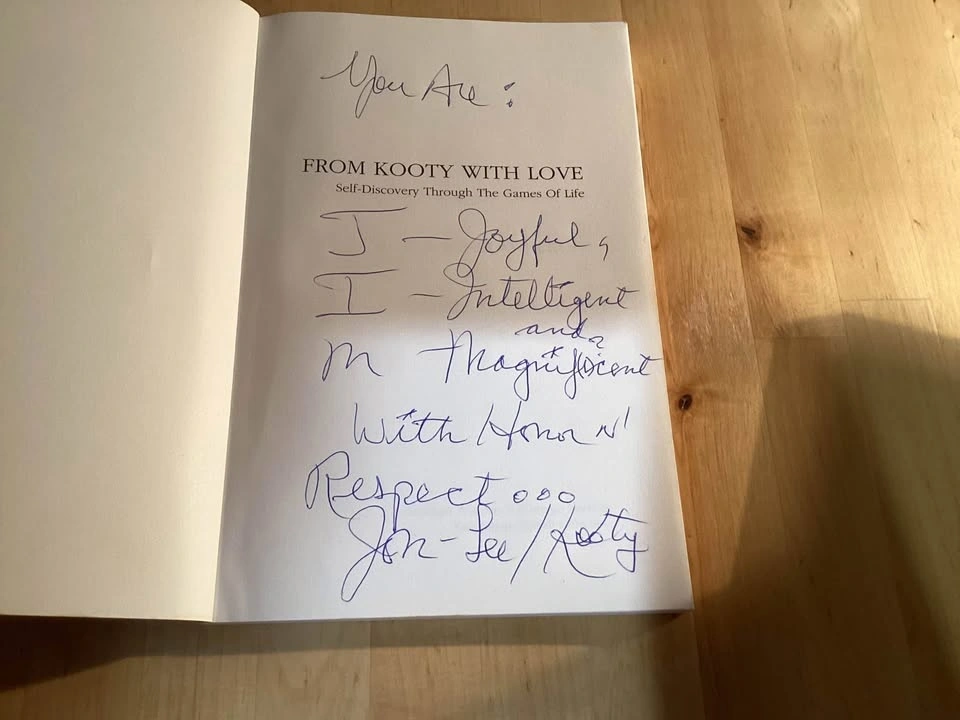 You Are :
FROM KOOTY WITH LOVE
Self-Discovery Through The Games Of Life
J — Joyful,
I — Intelligent
and
M — Magnificent
With Honor N'
Respect...
Jon-Lee/Kooty